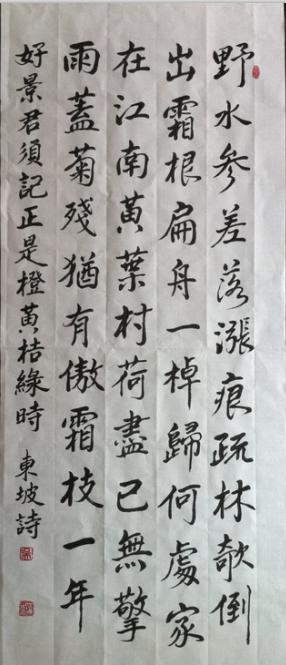 野水參差落漲痕疏林欹倒
出霜根扁舟一棹歸何處家
在江南黃葉村荷盡已無擎
雨蓋菊殘猶有傲霜枝一年
好景君須記正是橙黃桔綠時 東坡詩